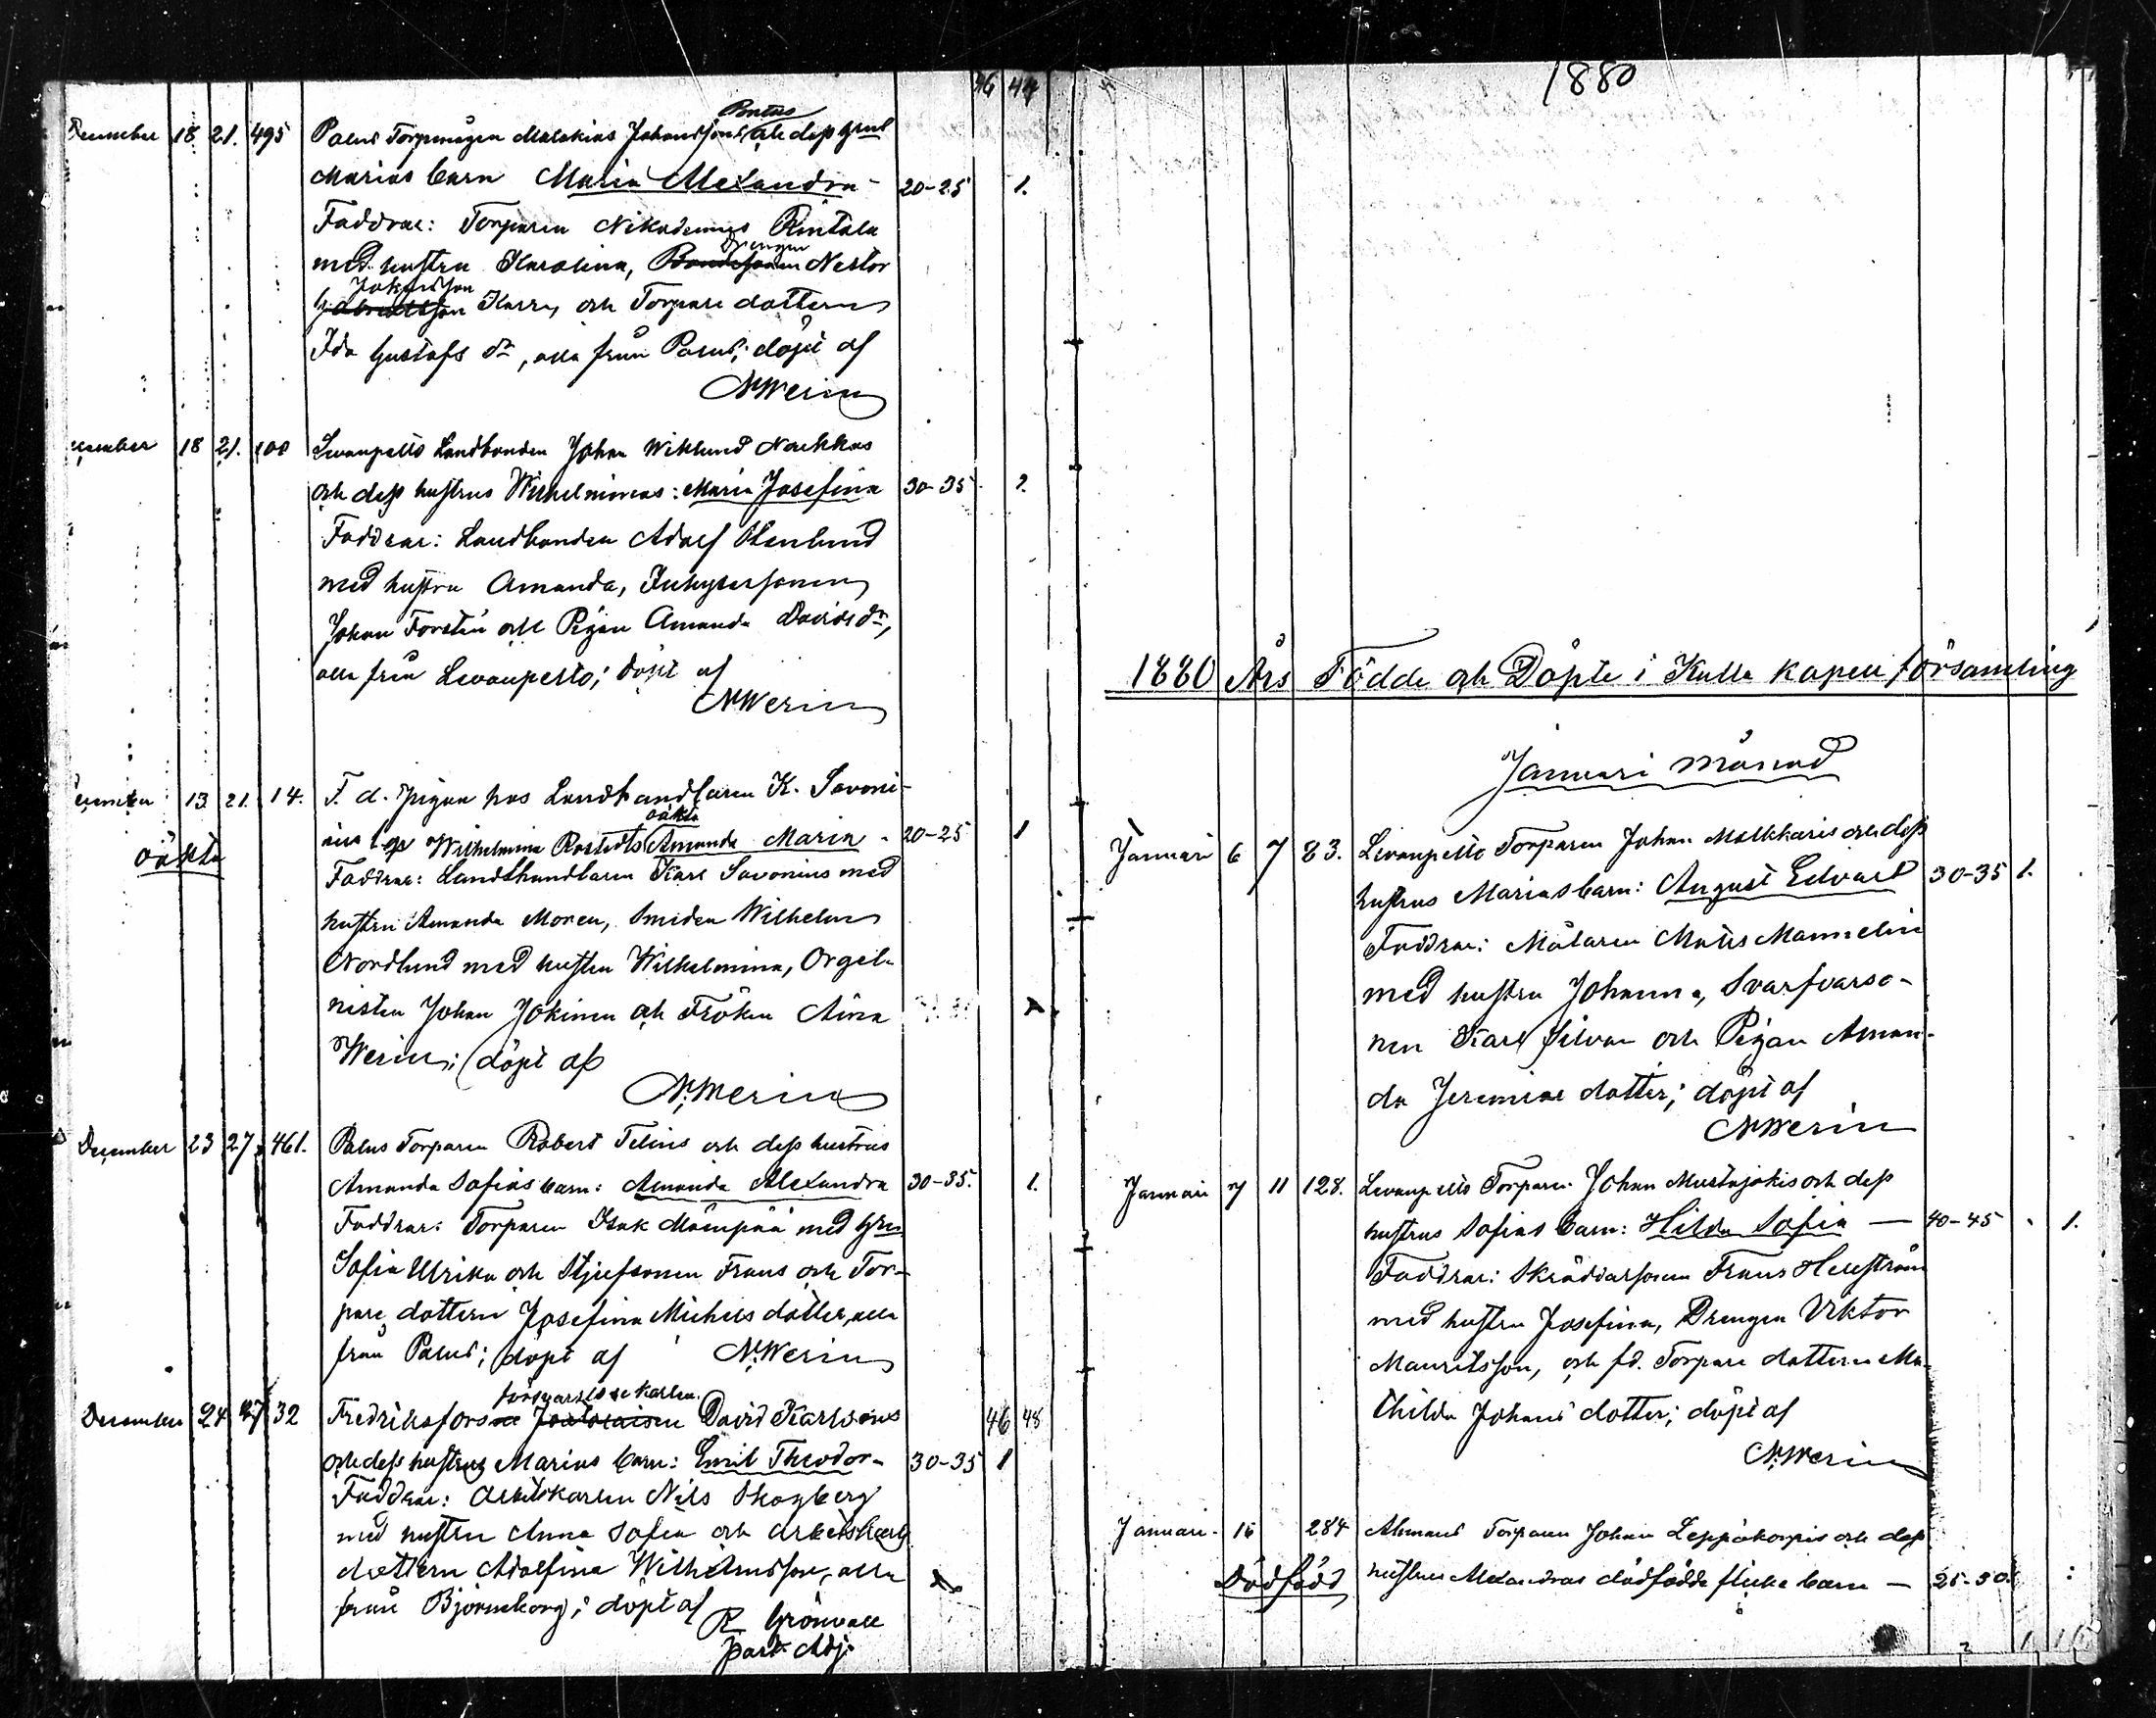 46 44
December 18 21. 495 Palus Torpmågen Malakias Johansson Pontus och dess hru
Marias barn Maria Alexandra - 20-25 1.
Faddrar: Torparen Nikodemus Rintala
med hustru Karolina, Bondesonen Drengen Nestor
Gabrielsson Johansson Karry och Torpare dottern
Ida Gustafs dr, alla från Palus; döpt af
N Werin
December 18 21. 100 Levanpelto Landbonden Johan Wiklund Naukkas
och dess hustrus Wilhelminas: Maria Josefina 30-35 1.
Faddrar: Landbonden Adolf Stenlund
med hustru Amanda, Inhysersonen
Johan Forstén och Pigan Amanda Davids dr,
alla från Levanpelto; döpt af
N Werin
December 13 21. 14. F. d. pigan hos Landthandlaren K. Savoni-
oäkta
us Wilhelmina Rostedts Amanda Maria - 20-25 1
oäkta
Faddrar: Landthandlaren Karl Savonius med
hustru Amanda Moren, Smeden Wilhelm
Nordlund med hustru Wilhelmina, Orgel-
nisten Johan Jokinen och Fröken Aina
Werin; döpt af
N. Werin
December 23 27. 461. Palus Torparen Robert Telins och dess hustrus
Amanda Sofias barn: Amanda Alexandra 30-35. 1.
Faddrar: Torparen Isak Mäenpää med hru
Sofia Ulrika och Styfsonen Frans och Tor-
pare dottern Josefina Michels dotter, alla
från Palus; döpt af N. Werin
försvarslöse karlen
December 24 27 32 Fredriksfors David Karlssons 46 48
och dess hustrus Marias barn: Emil Theodor - 30-35 1
Faddrar: Arbetskarlen Nils Skogberg
med hustru Anna Sofia och arbetskarls
dottern Adolfina Wilhelmsson, alla
från Björneborg; döpt af
R Grönvall
past. Adj.
1880
1880 Års Födde och Döpte i Kulla Kapell församling
Januari månad
Januari 6 7 83. Levanpelto Torparen Johan Malkkaris och dess
hustrus Marias barn: August Edvard 30-35 1.
Faddrar: Målaren Matts Mannelin
med hustru Johanna, Svarfvarso-
nen Karl Silvan och Pigan Aman-
da Jeremias dotter; döpt af
N Werin
Januari 7 11 128. Levanpelto Torparen Johan Mustajokis och dess
hustrus Sofias barn: Hilda Sofia — 40-45 1.
Faddrar: Skräddarsonen Frans Hellström
med hustru Josefina, Drengen Viktor
Mauritsson, och fd. Torpare dottern Ma-
thilda Johans dotter; döpt af
N. Werin
Januari. 16 284 Ahmaus Torparen Johan Leppäkorpis och dess
Dödfödd hustrus Alexandras dödfödda flicke barn — 25-30.